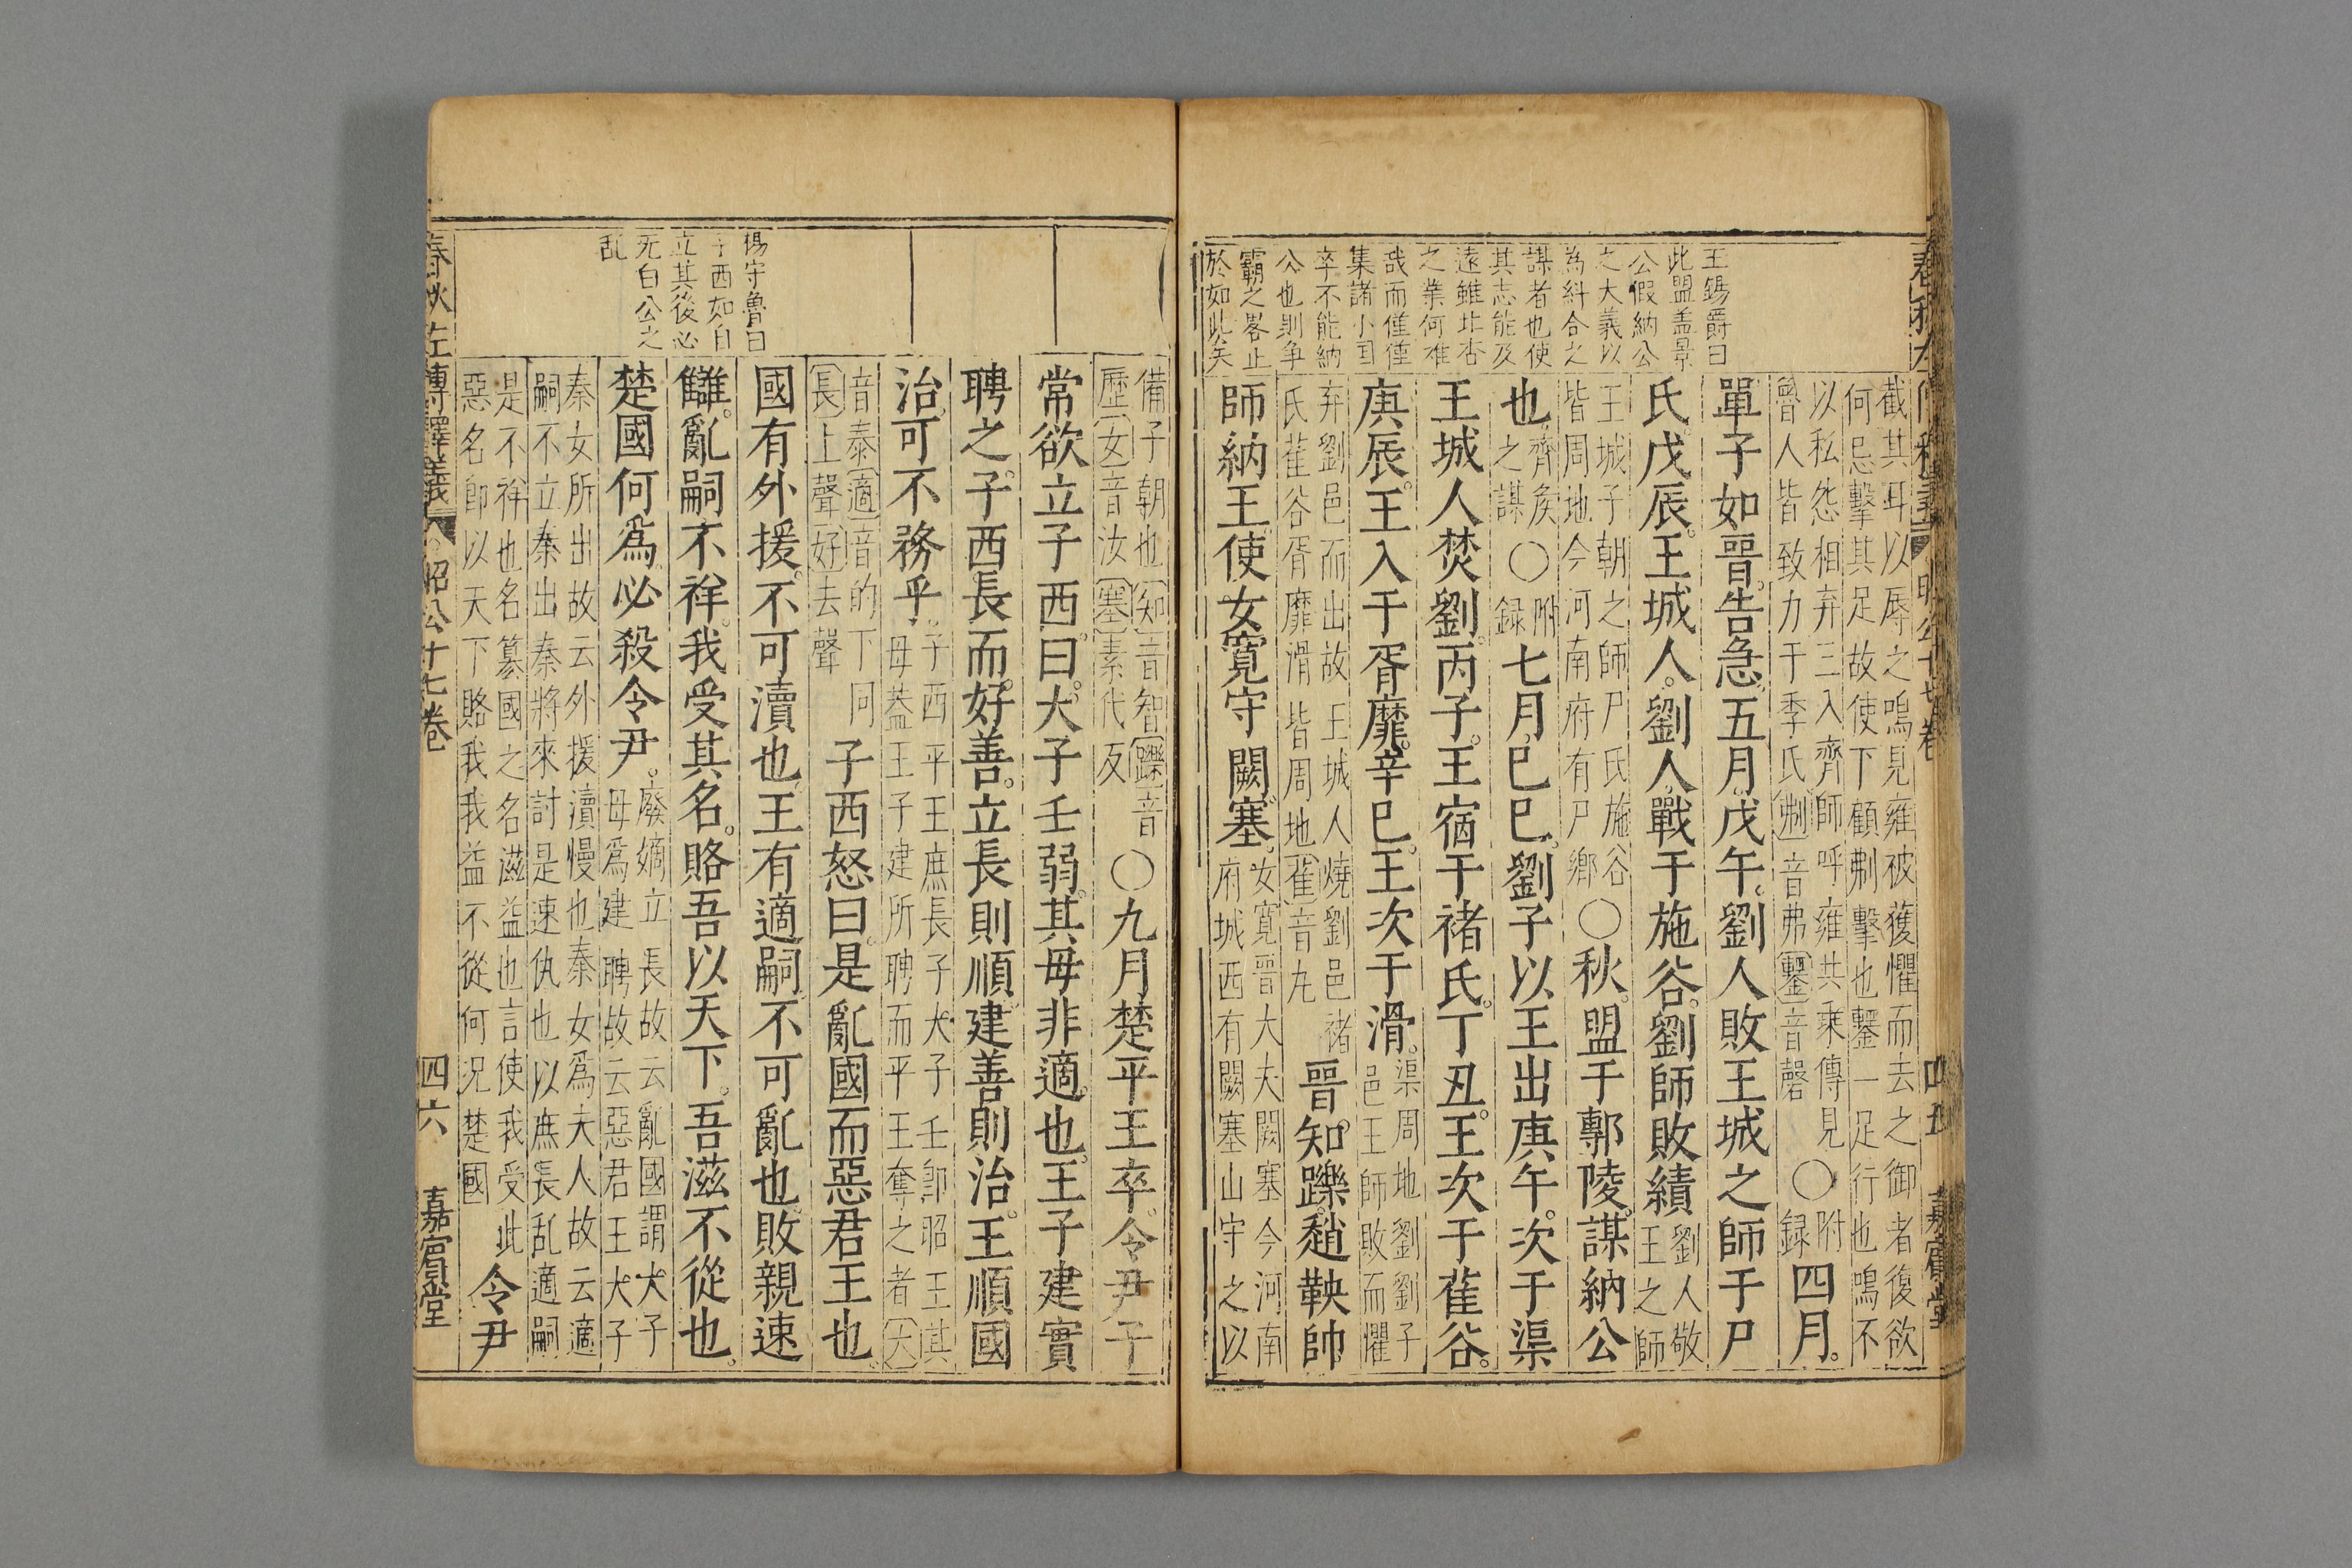 王錫爵曰
此盟盖景
公假納公
之大義以
為糾合之
謀者也使
其志能及
遠雖北杏
之業何难
哉而僅僅
集諸小国
卒不能納
公也則争
霸之畧止
於如此矣
截其耳以辱之鳴見雍被獲懼而去之御者復欲
何忌擊其足故使下顧刜擊也鑋一足行也鳴不
以私怨相弃三入齊師呼雍共乘傳見
魯人皆致力于季氏刜音弗鑋音磬
○附錄四月。
單子如晉。告急。五月。戊午。劉人敗王城之師于尸
氏。戊辰。王城人。劉人。戰于施谷。劉師敗績
劉人敬
王之師
王城子朝之師尸氏施谷
皆周地今河南府有尸鄉
○秋。盟于鄟陵。謀納公
也。
齊矦
之謀
○附錄七月。巳巳。劉子以王出庚午。次于渠
王城人焚劉。丙子。王宿于褚氏。丁丑。王次于萑谷。
庚辰。王入于胥靡。辛巳。王次于滑。
渠周地劉劉子
邑王師敗而懼
弃劉邑而出故王城人燒劉邑褚
氏萑谷胥靡滑皆周地萑音丸
晉知躒。趙鞅帥
師納王。使女寬守闕塞。
女寛晉大夫闕塞今河南
府城西有闕塞山守之以
春秋左傳釋義 昭公十七卷 四五 嘉賓堂
楊守魯曰
子西如自
立其後必
无白公之
乱
備子朝也知音智躒音
歷女音汝塞素代反
○九月楚平王卒。令尹子
常欲立子西。曰。大子壬弱。其母非適也。王子建實
聘之。子西長而。好善。立長則順。建善則治。王順國
治。可不務乎。
子西平王庶長子大子壬卽昭王其
母葢王子建所聘而平王奪之者大
音泰適音的下同
長上聲好去聲
子西怒曰。是亂國而惡君王也。
國有外援。不可瀆也。王有適嗣。不可亂也。敗親速
讎。亂嗣不祥。我受其名。賂吾以天下。吾滋不從也。
楚國何爲。必殺令尹。
廢嫡立長故云亂國謂大子
母爲建聘故云惡君王大子
秦女所出故云外援瀆慢也秦女爲夫人故云適
嗣不立秦出秦將來討是速仇也以庶長乱適嗣
是不祥也名簒國之名滋益也言使我受此
惡名卽以天下賂我我益不從何况楚國
令尹
春秋左傳釋義 昭公十七卷 四六 嘉賓堂